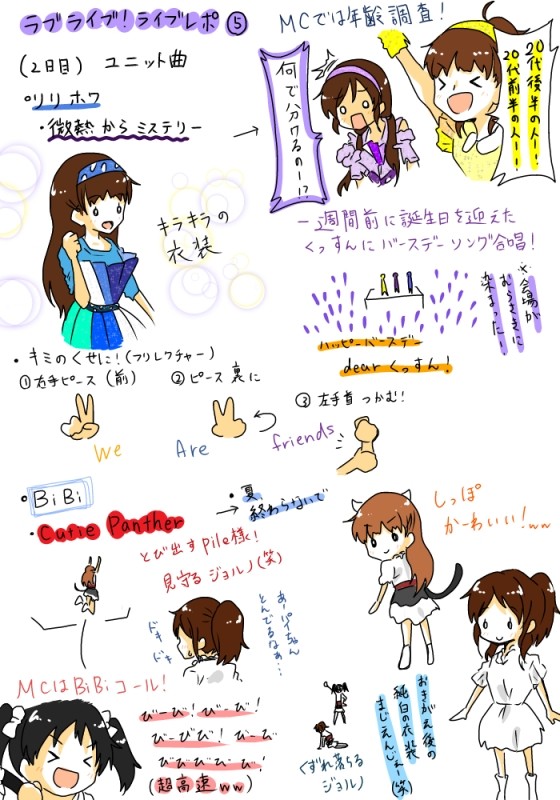 ラブライブ！ライブレポ⑤
(2日目) ユニット曲
°リリホワ
・微熱からミステリー
→
キラキラの
衣装
MCでは年齢調査！
何で分かるのー!?
20代後半の人ー！
20代前半の人ー！
一週間前に誕生日を迎えた
くっすんにバースデーソング合唱！
※会場が
むらさきに
染まったー！
ハッピーバースデー
dear くっすん！
・キミのくせに！(フリレクチャー)
①右手ピース(前)
②ピース裏に
③左手首つかむ！
We
Are
friends
・BiBi
・Cutie Panther
→
・夏、
終わらないで
とび出すpile様！
見守るジョルノ(笑)
ドキ
ドキ
あーパイちゃん
とんでるなぁ…
しっぽ
かーわいい！ww
MCはBiBiコール！
びーび！びーび！
びーび！びーび
びびびびび！
(超高速ww)
くずれ落ちる
ジョルノ
おきがえ後の
純白の衣装
まじえんじぇー(笑)